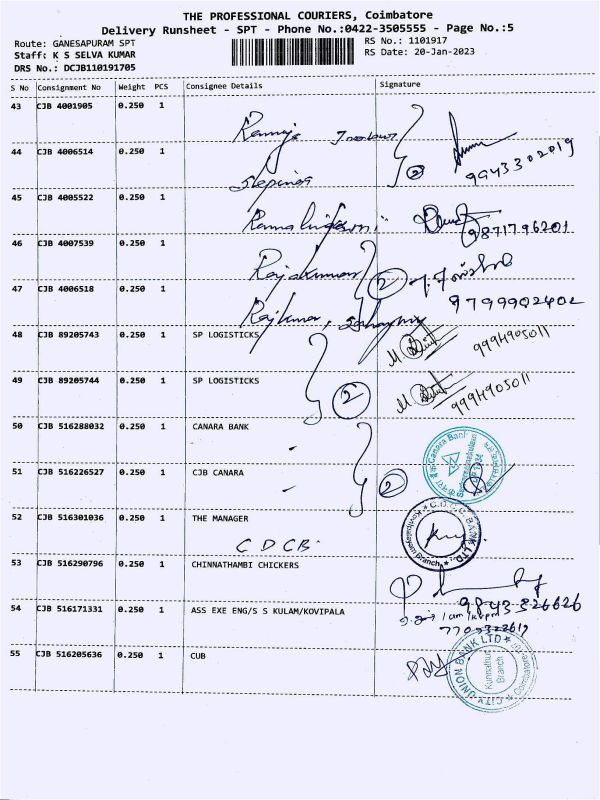 THE PROFESSIONAL COURIERS, Coimbatore
Delivery Runsheet - SPT - Phone No.:0422-3505555 - Page No.:5
Route: GANESAPURAM SPT
Staff: K S SELVA KUMAR
DRS No.: DCJB110191705
RS No.: 1101917
RS Date: 20-Jan-2023
S No Consignment No Weight PCS Consignee Details Signature
43 CJB 4001905 0.250 1
44 CJB 4006514 0.250 1
9943302019
45 CJB 4005522 0.250 1
9871796201
46 CJB 4007539 0.250 1 Rajakumar
47 CJB 4006518 0.250 1 Rajkumar,
9799902402
48 CJB 89205743 0.250 1 SP LOGISTICKS 9994905011
49 CJB 89205744 0.250 1 SP LOGISTICKS 9994905011
50 CJB 516288032 0.250 1 CANARA BANK
Canara Bank
51 CJB 516226527 0.250 1 CJB CANARA
52 CJB 516301036 0.250 1 THE MANAGER
C D C B
Kovipalayam Branch
53 CJB 516290796 0.250 1 CHINNATHAMBI CHICKERS
9843326626
54 CJB 516171331 0.250 1 ASS EXE ENG/S S KULAM/KOVIPALA
55 CJB 516205636 0.250 1 CUB
CITY UNION BANK LTD
Kunnathur
Branch
Coimbatore